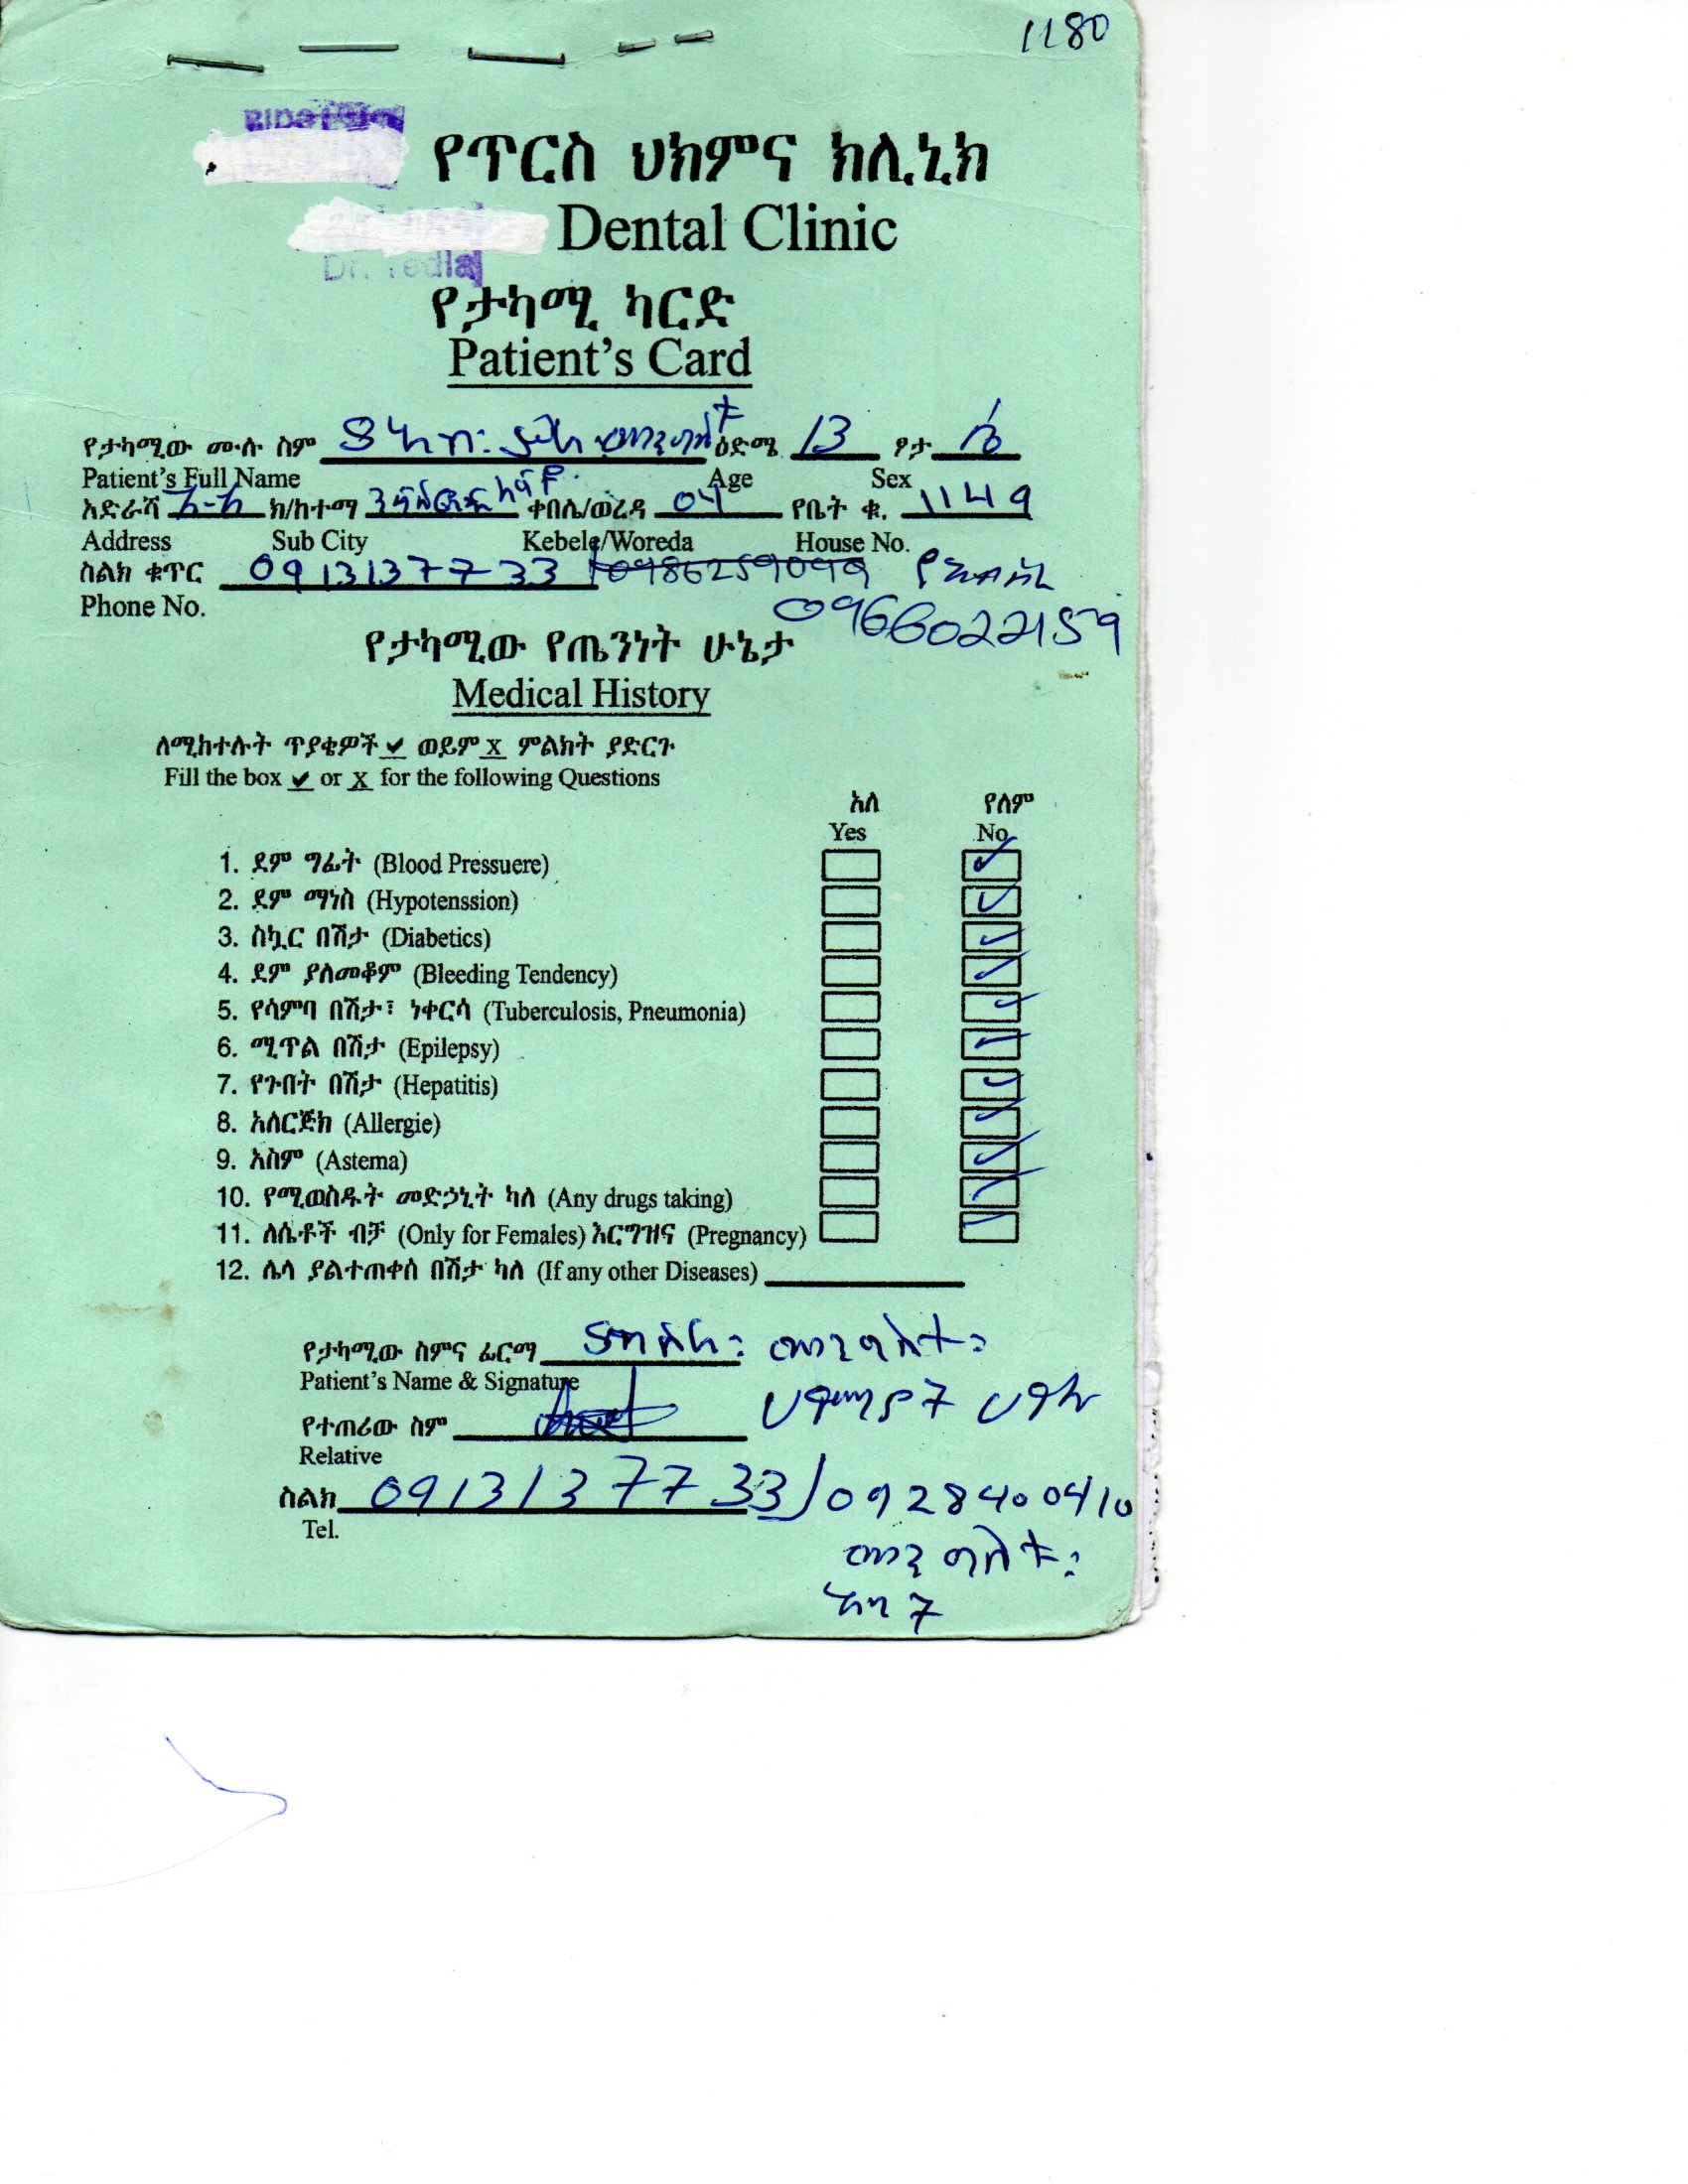 1180
የጥርስ ህክምና ክሊኒክ
Dental Clinic
Dr. Tedla
የታካሚ ካርድ
Patient's Card
የታካሚው ሙሉ ስም ዕድሜ 13 ፆታ
Patient's Full Name Age Sex
አድራሻ አ-አ ክ/ከተማ ቀበሌ/ወረዳ 04 የቤት ቁ. 1149
Address Sub City Kebele/Woreda House No.
ስልክ ቁጥር 0913137733 0986259099
Phone No. 0966022159
የታካሚው የጤንነት ሁኔታ
Medical History
ለሚከተሉት ጥያቄዎች ✓ ወይም X ምልክት ያድርጉ
Fill the box ✓ or X for the following Questions
አለ የለም
Yes No
1. ደም ግፊት (Blood Pressuere) ✓
2. ደም ማነስ (Hypotenssion) ✓
3. ስኳር በሽታ (Diabetics) ✓
4. ደም ያለመቆም (Bleeding Tendency) ✓
5. የሳምባ በሽታ፣ ነቀርሳ (Tuberculosis, Pneumonia) ✓
6. ሚጥል በሽታ (Epilepsy) ✓
7. የጉበት በሽታ (Hepatitis) ✓
8. አለርጅክ (Allergie) ✓
9. አስም (Astema) ✓
10. የሚወስዱት መድኃኒት ካለ (Any drugs taking) ✓
11. ለሴቶች ብቻ (Only for Females) እርግዝና (Pregnancy) ✓
12. ሌላ ያልተጠቀሰ በሽታ ካለ (If any other Diseases)
የታካሚው ስምና ፊርማ መንግስቱ
Patient's Name & Signature
የተጠሪው ስም
Relative
ስልክ 0913137733/0928400410
Tel.
መንግስቱ